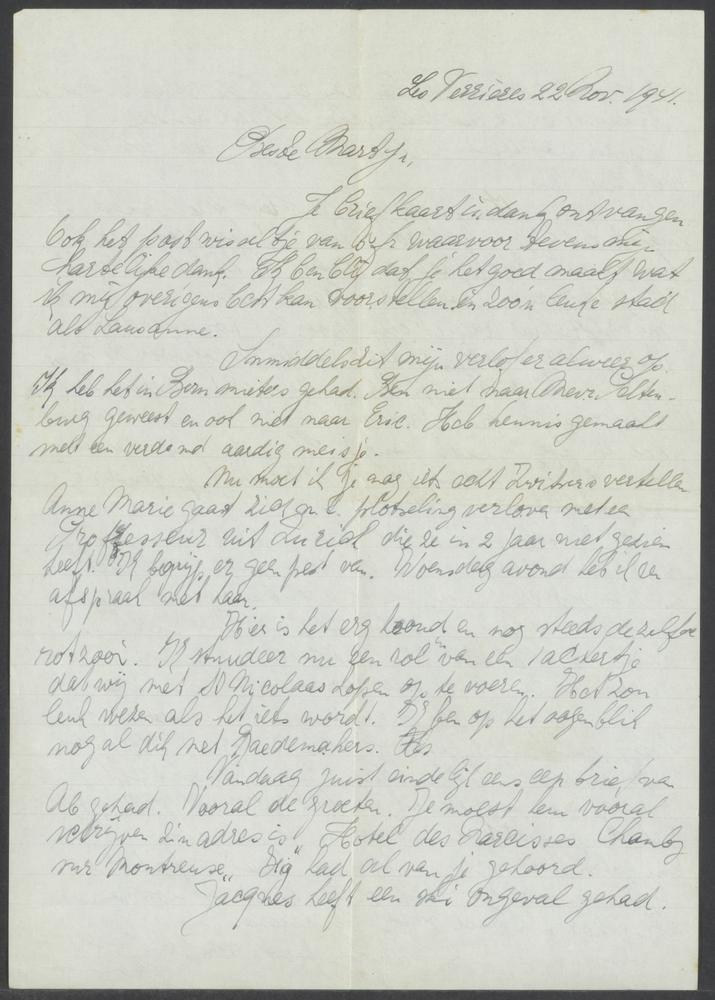 Les Verrières 22 Nov. 1941.
Beste Martyn,
Je briefkaart in dank ontvangen
Ook het postwisseltje van waarvoor tevens mijn
hartelijke dank. Ik ben blij dat je het goed maakt wat
ik mij overigens best kan voorstellen in zoo'n leuke stad
als Lausanne.
Inmiddels zit mijn verlof er alweer op.
Ik heb het in Bern miters gehad. Ben niet naar Mevr.
burg geweest en ook niet naar Eric. Heb kennis gemaakt
met een verdomd aardig meisje.
Nu moet ik je nog iets echt Zwitsers vertellen
Anne Marie gaat zich plotseling verloven met een
Professeur uit Zurich die ze in 2 jaar niet gezien
heeft. Ik begrijp er geen pest van. Woensdag avond heb ik een
afspraak met haar.
Hier is het erg koud en nog steeds dezelfde
rotzooi. Ik studeer nu een rol van een 1 actertje
dat wij met St Nicolaas hopen op te voeren. Het zou
leuk wezen als het iets wordt. Ik ben op het oogenblik
nogal dik met Raedemakers.
Vandaag juist eindelijk eens een brief van
Ab gehad. Vooral de groeten. Je moest hem vooral
schrijven zijn adres is "Hotel des Narcisses Chamby
sur Montreux" Hij had al van je gehoord.
Jacques heeft een ski ongeval gehad.